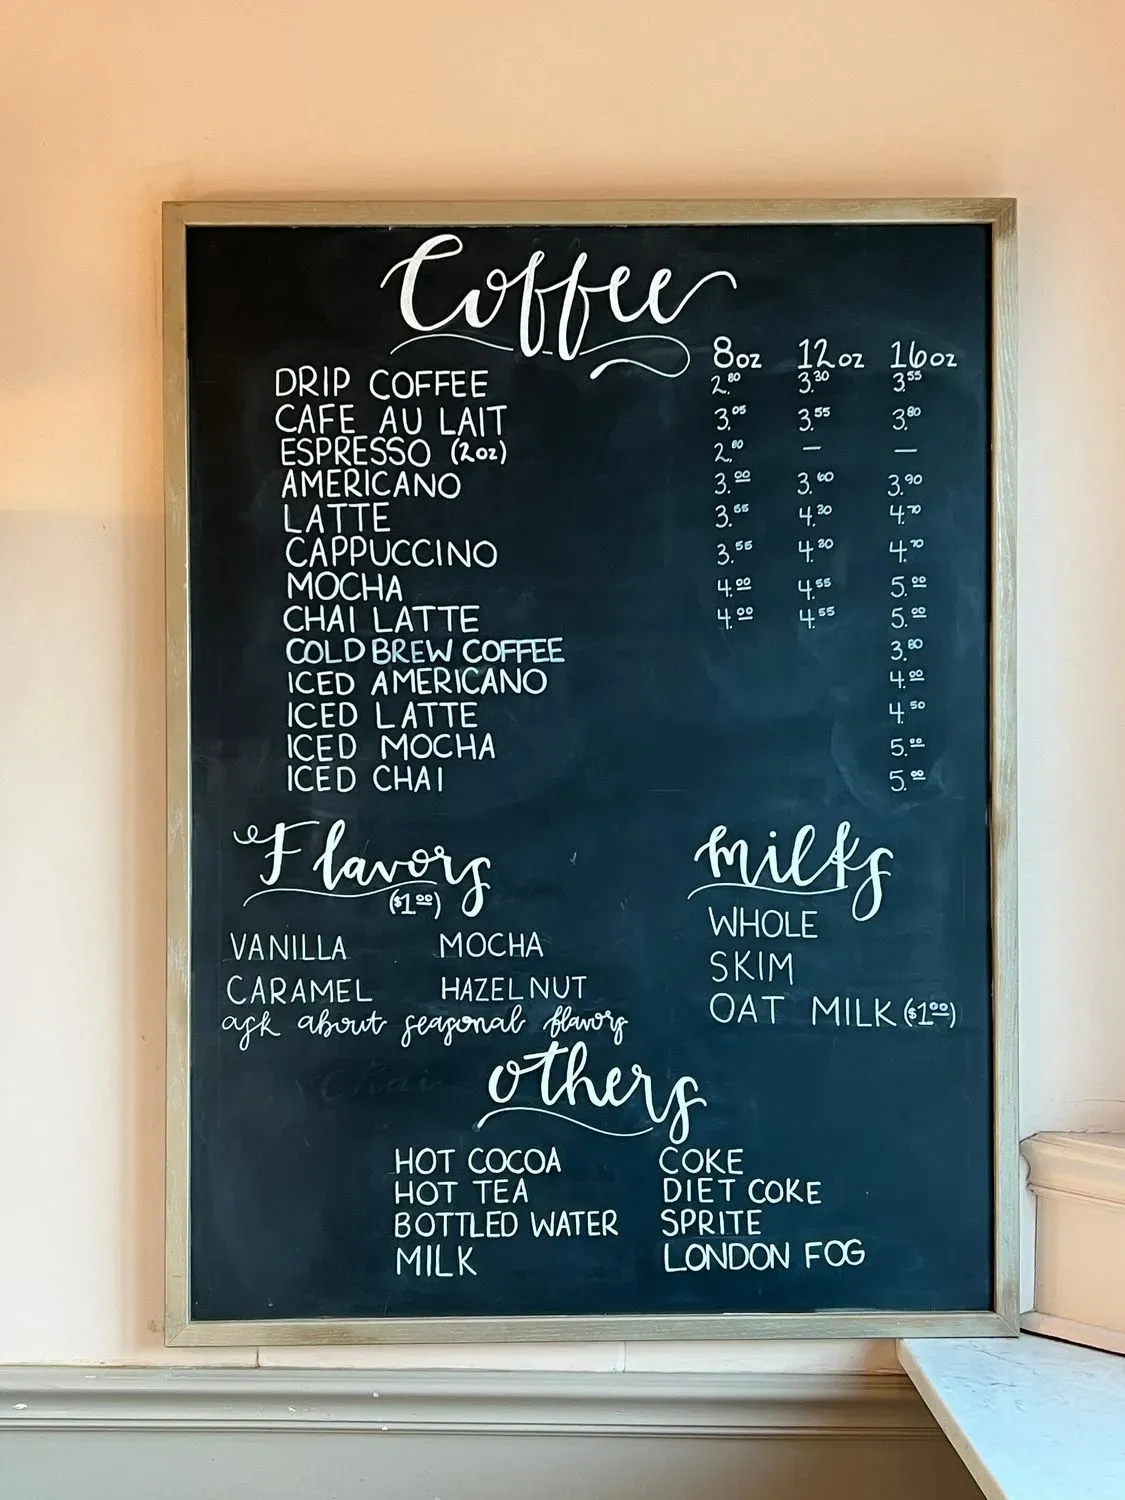 Coffee
8oz 12oz 16oz
DRIP COFFEE 2.80 3.30 3.55
CAFE AU LAIT 3.05 3.55 3.80
ESPRESSO (2oz) 2.80 — —
AMERICANO 3.00 3.60 3.90
LATTE 3.55 4.20 4.70
CAPPUCCINO 3.55 4.20 4.70
MOCHA 4.00 4.55 5.00
CHAI LATTE 4.00 4.55 5.00
COLD BREW COFFEE 3.80
ICED AMERICANO 4.00
ICED LATTE 4.50
ICED MOCHA 5.00
ICED CHAI 5.00
Flavors
($1.00)
VANILLA MOCHA
CARAMEL HAZELNUT
ask about seasonal flavors
milks
WHOLE
SKIM
OAT MILK ($1.00)
Chai
others
HOT COCOA COKE
HOT TEA DIET COKE
BOTTLED WATER SPRITE
MILK LONDON FOG